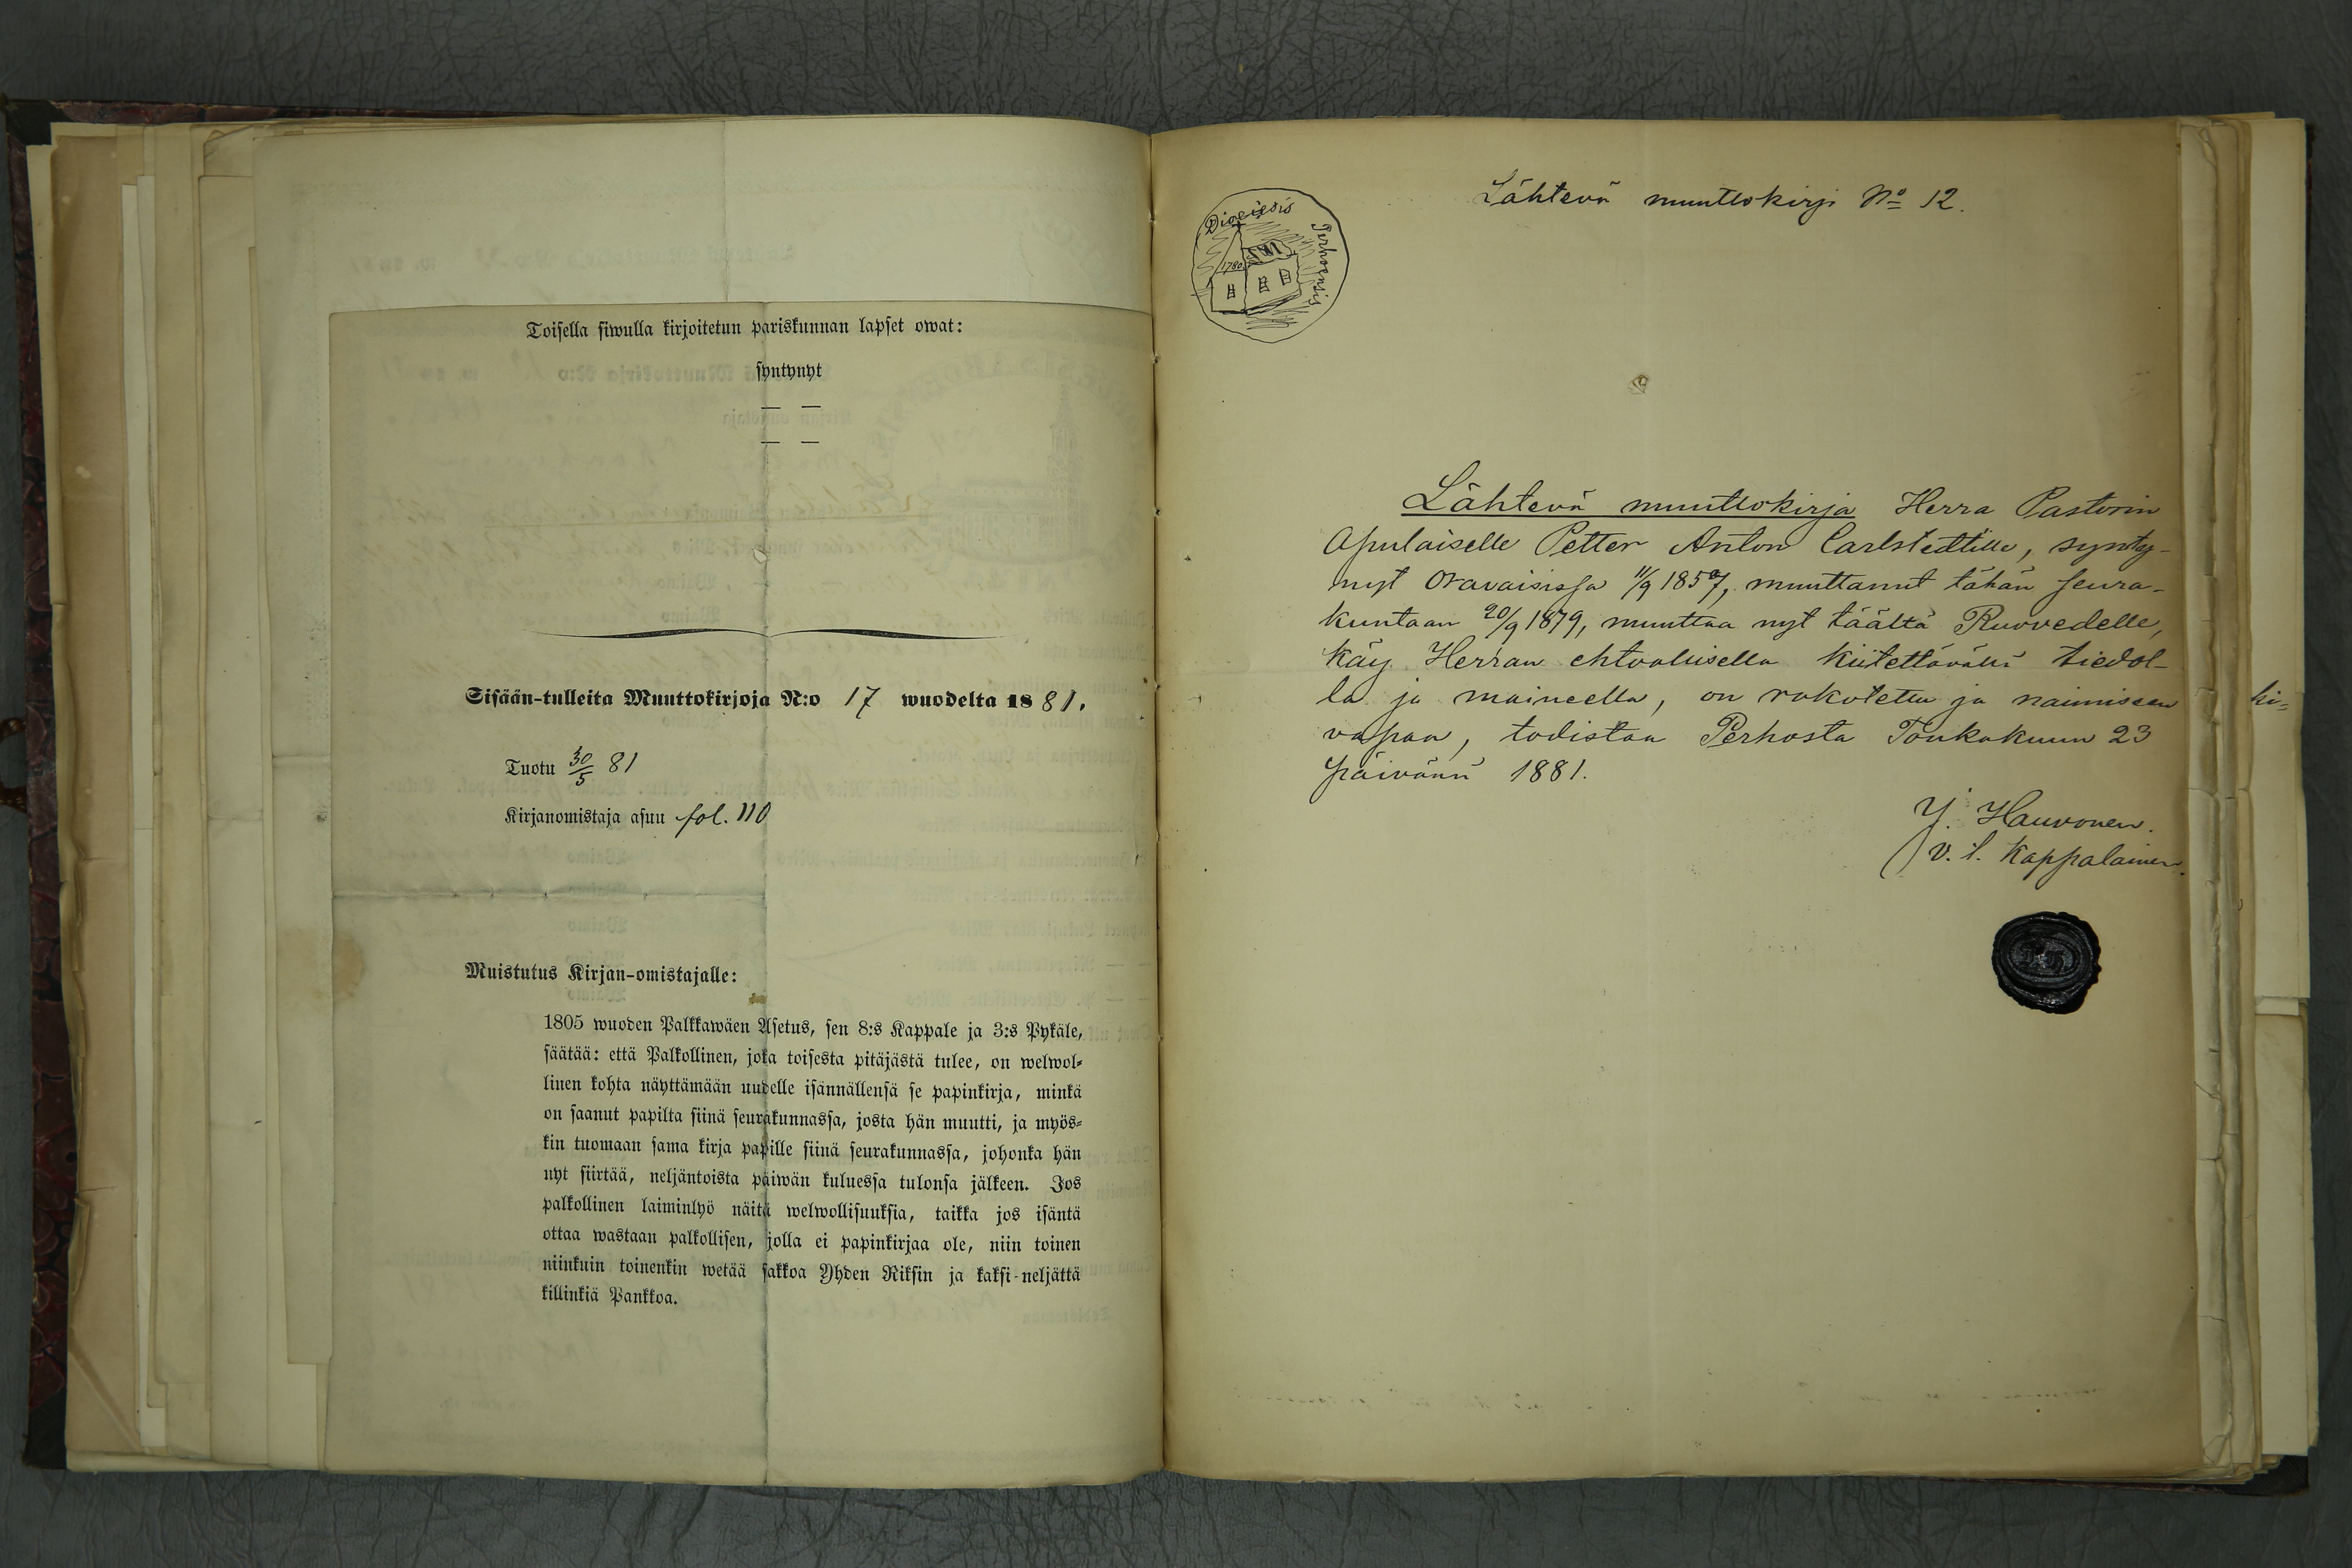 Toisella siwulla kirjoitetun pariskunnan lapset owat:
syntynyt
— —
— —
Sisään-tulleita Muuttokirjoja N:o 17 wuodelta 1881.
Tuotu 30/5 81
Kirjanomistaja asuu fol. 110
Muistutus Kirjan-omistajalle:
1805 wuoden Palkkawäen Asetus, sen 8:s Kappale ja 3:s Pykäle,
säätää: että Palkollinen, joka toisesta pitäjästä tulee, on welwol-
linen kohta näyttämään uudelle isännällensä se papinkirja, minkä
on saanut papilta siinä seurakunnassa, josta hän muutti, ja myös-
kin tuomaan sama kirja papille siinä seurakunnassa, johonka hän
nyt siirtää, neljäntoista päiwän kuluessa tulonsa jälkeen. Jos
palkollinen laiminlyö näitä welwollisuuksia, taikka jos isäntä
ottaa wastaan palkollisen, jolla ei papinkirjaa ole, niin toinen
niinkuin toinenkin wetää sakkoa Yhden Riksin ja kaksi-neljättä
killinkiä Pankkoa.
Lähtevä muuttokirja No 12.
Dioeisis Perhoensis
1780
Lähtevä muuttokirja Herra Pastorin
Apulaiselle Petter Anton Carlstedtille, synty-
nyt Oravaisissa 11/9 1857, muuttanut tähän seura-
kuntaan 20/9 1879, muuttaa nyt täältä Ruovedelle,
käy Herran ehtoollisella kiitettävällä tiedol-
la ja maineella, on rokotettu ja naimiseen
vapaa, todistaa Perhosta Toukokuun 23
päivänä 1881.
Y. Hauvonen.
v. t. Kappalainen.
ki=